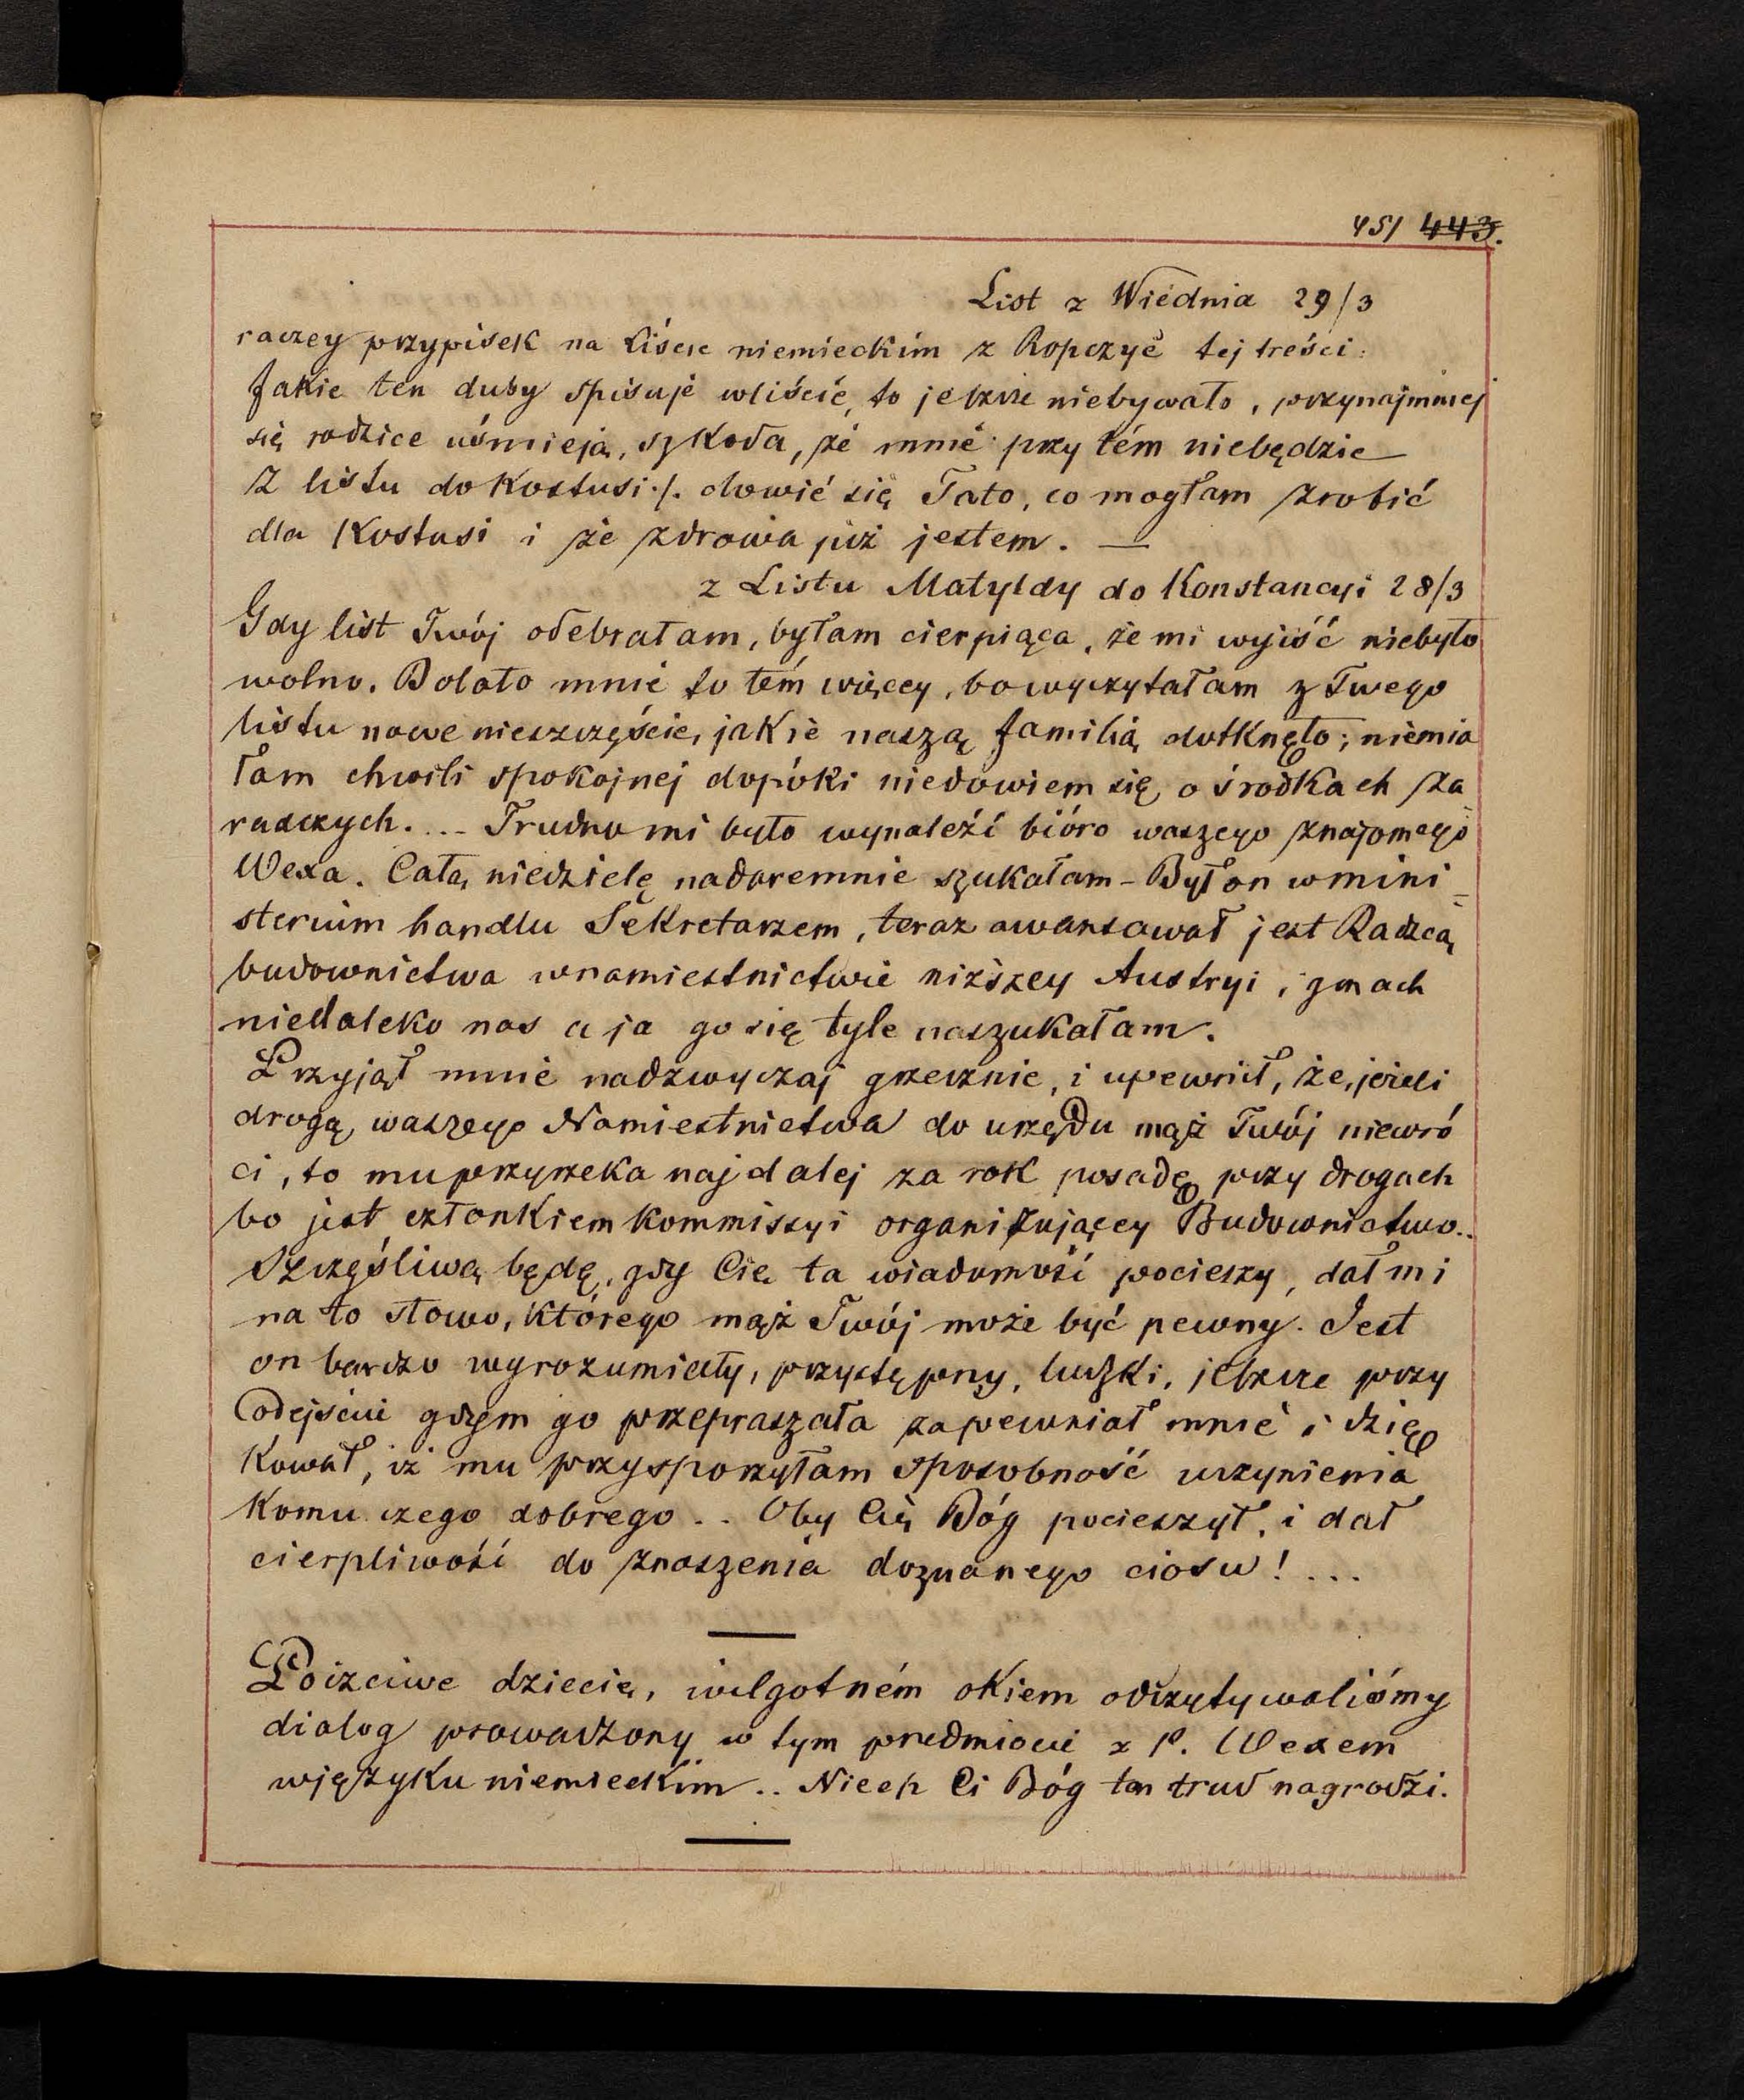 451 443.
List z Wiednia 29/3
raczey przypisek na Liście niemieckim z Ropczyc tej treści:
Jakie ten duby spisuje wliście, to jeszcze niebywało, przynajmniej
się rodzice uśmieją, szkoda, że mnie przy tém niebędzie
Z listu do Kostusi ./. dowié się Tato, co mogłam zrobić
dla Kostusi i że zdrowa już jestem. —
z Listu Matyldy do Konstancyi 28/3
Gdy list Twój odebrałam, byłam cierpiąca, że mi wyjść niebyło
wolno. Bolało mnie to tém więcey, bo wyczytałam z Twego
listu nowe nieszczęście, jakie naszą familią dotknęło; niemia
łam chwili spokojnej dopóki niedowiem się o środkach za
radczych. ... Trudno mi było wynaleźć bióro waszego znajomego
Wexa. Całą niedzielę nadaremnie szukałam - Był on wmini_
sterium handlu Sekretarzem, teraz awansował jest Radzcą
budownictwa wnamiestnictwie niższey Austryi, gmach
niedaleko nas a ja go się tyle naszukałam.
Przyjął mnie nadzwyczaj grzecznie, i upewnił, że, jeżeli
drogą waszego Namiestnictwa do urzędu mąż Twój niewró
ci, to mu przyrzeka najdalej za rok posadę przy drogach
bo jest członkiem kommissyi organizującey Budownictwo..
Szczęśliwą będę, gdy Cię ta wiadomość pocieszy, dał mi
na to słowo, którego mąż Twój może być pewny. Jest
on bardzo wyrozumiały, przystępny, ludzki, jeszcze przy
odejściu gdym go przepraszała zapewniał mnie i dzię
kował, iż mu przysporzyłam sposobność uczynienia
komu czego dobrego .. Oby Cię Bóg pocieszył, i dał
cierpliwość do znoszenia doznanego ciosu! ...
Poczciwe dziecię, wilgotném okiem odczytywaliśmy
dialog prowadzony w tym przedmiocie z P. Wexem
wjęzyku niemieckim .. Niech Ci Bóg ten trud nagrodzi.